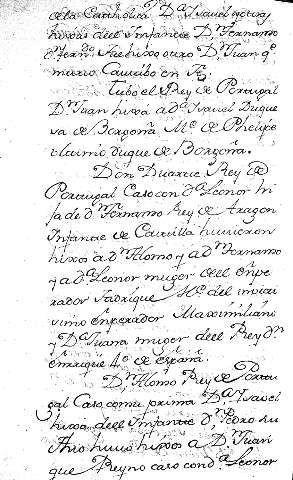 de la Catholica Dª Ysavel y otras
hixas del Ynfante Dⁿ Fernamo
Dⁿ Fern.º Tubo hixo otro Dⁿ Juan q.e
murio Cautibo en Fez
Tubo el Rey de Portugal
Dⁿ Juan hixa a Dª Ysavel Duque
sa de Borgoña Mᵉ de Phelipe
Duque de Borgoña.
Don Duarte Rey de
Portugal Caso con dª Leonor hi
ja de dⁿ Fernamo Rey de Aragon
Infante de Castilla huvieron
hixos a dⁿ Alomo y a dⁿ Fernamo
y a dª Leonor muger del Enpe
rador Fadrique Mᵉ del
simo enperador Maximiliano
y Dª Juana muger de el Rey dⁿ
Enrrique 4º de españa
Dⁿ Alomo Rey de Portu
gal Caso con su prima Dª Ysavel
hixa de el Infante dⁿ Pedro su
thio huvo hixos a Dⁿ Juan
que Reyno caso con dª Leonor